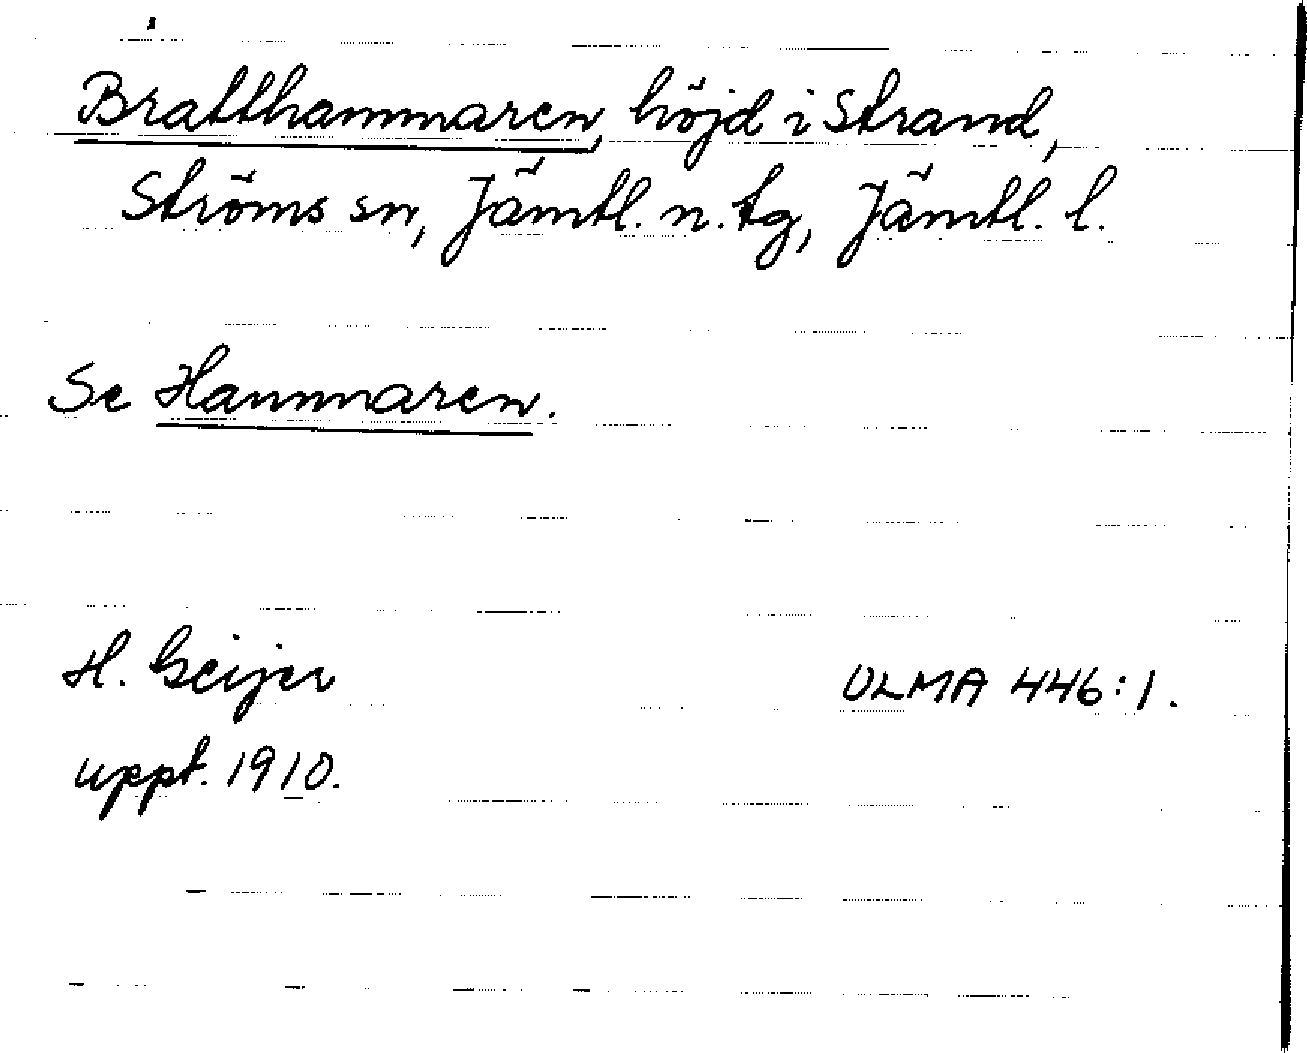 Bratthammaren, höjd i Strand,
Ströms sn, Jämtl. n. tg, Jämtl. l.
Se Hammaren.
H. Geijer
ULMA 446:1.
uppt. 1910.